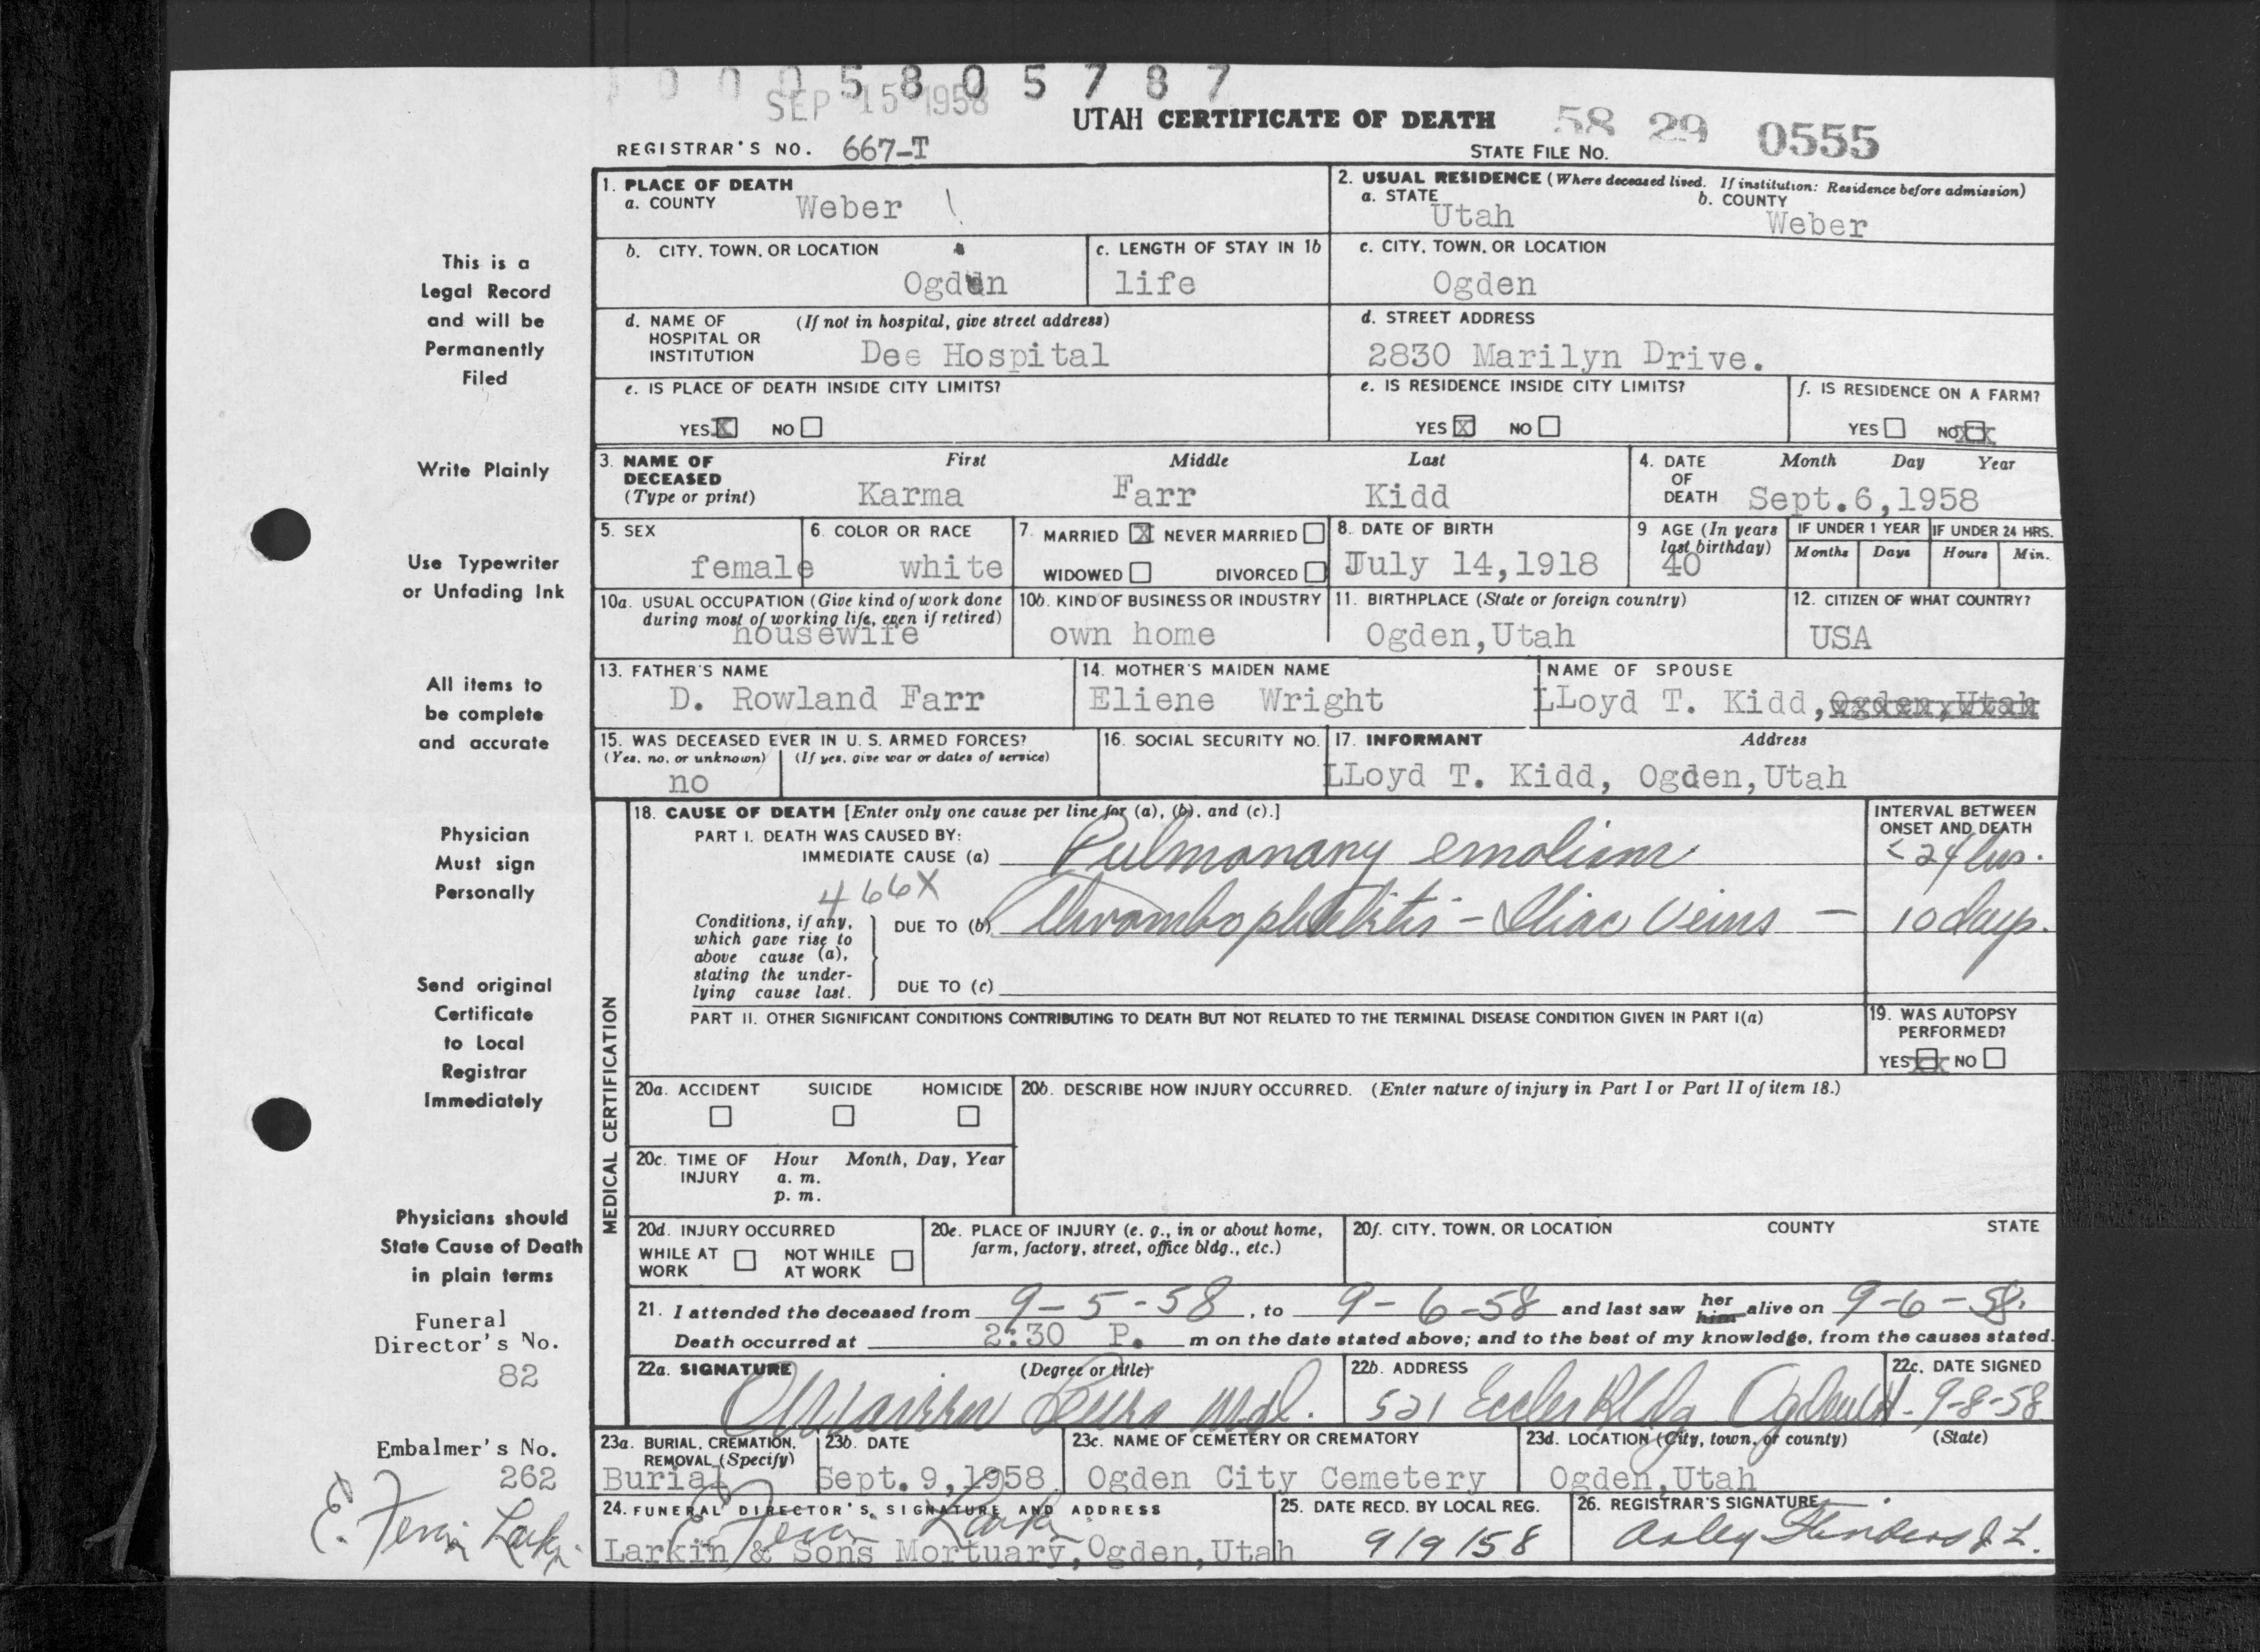 0 0 0 5 8 0 5 7 8 7
SEP 15 1958
UTAH CERTIFICATE OF DEATH
58 29 0555
REGISTRAR'S NO. 667-T
STATE FILE NO.
This is a
Legal Record
and will be
Permanently
Filed
Write Plainly
Use Typewriter
or Unfading Ink
All items to
be complete
and accurate
Physician
Must sign
Personally
Send original
Certificate
to Local
Registrar
Immediately
Physicians should
State Cause of Death
in plain terms
Funeral
Director's No.
82
Embalmer's No.
262
E. Larkin
1. PLACE OF DEATH
a. COUNTY Weber
2. USUAL RESIDENCE (Where deceased lived. If institution: Residence before admission)
a. STATE Utah b. COUNTY Weber
b. CITY, TOWN, OR LOCATION Ogden
c. LENGTH OF STAY IN 1b life
c. CITY, TOWN, OR LOCATION
Ogden
d. NAME OF HOSPITAL OR INSTITUTION (If not in hospital, give street address)
Dee Hospital
d. STREET ADDRESS
2830 Marilyn Drive.
e. IS PLACE OF DEATH INSIDE CITY LIMITS?
YES X NO
e. IS RESIDENCE INSIDE CITY LIMITS?
YES X NO
f. IS RESIDENCE ON A FARM?
YES NO XX
3. NAME OF DECEASED (Type or print) First Middle Last
Karma Farr Kidd
4. DATE OF DEATH Month Day Year
Sept.6,1958
5. SEX
female
6. COLOR OR RACE
white
7. MARRIED X NEVER MARRIED
WIDOWED DIVORCED
8. DATE OF BIRTH
July 14,1918
9 AGE (In years last birthday)
40
IF UNDER 1 YEAR IF UNDER 24 HRS.
Months Days Hours Min.
10a. USUAL OCCUPATION (Give kind of work done during most of working life, even if retired)
housewife
10b. KIND OF BUSINESS OR INDUSTRY
own home
11. BIRTHPLACE (State or foreign country)
Ogden,Utah
12. CITIZEN OF WHAT COUNTRY?
USA
13. FATHER'S NAME
D. Rowland Farr
14. MOTHER'S MAIDEN NAME
Eliene Wright
NAME OF SPOUSE
LLoyd T. Kidd, Ogden,Utah
15. WAS DECEASED EVER IN U. S. ARMED FORCES?
(Yes, no, or unknown) (If yes, give war or dates of service)
no
16. SOCIAL SECURITY NO.
17. INFORMANT Address
LLoyd T. Kidd, Ogden,Utah
MEDICAL CERTIFICATION
18. CAUSE OF DEATH [Enter only one cause per line for (a), (b), and (c).]
INTERVAL BETWEEN
ONSET AND DEATH
PART I. DEATH WAS CAUSED BY:
IMMEDIATE CAUSE (a) Pulmonary emolism < 24 hrs.
466X
Conditions, if any,
which gave rise to
above cause (a),
stating the under-
lying cause last.
DUE TO (b) Thrombophlebitis - Iliac Veins - 10 days.
DUE TO (c)
PART II. OTHER SIGNIFICANT CONDITIONS CONTRIBUTING TO DEATH BUT NOT RELATED TO THE TERMINAL DISEASE CONDITION GIVEN IN PART I(a)
19. WAS AUTOPSY
PERFORMED?
YES XX NO
20a. ACCIDENT SUICIDE HOMICIDE
20b. DESCRIBE HOW INJURY OCCURRED. (Enter nature of injury in Part I or Part II of item 18.)
20c. TIME OF INJURY Hour Month, Day, Year
a. m.
p. m.
20d. INJURY OCCURRED
WHILE AT WORK NOT WHILE AT WORK
20e. PLACE OF INJURY (e. g., in or about home, farm, factory, street, office bldg., etc.)
20f. CITY, TOWN, OR LOCATION COUNTY STATE
21. I attended the deceased from 9-5-58, to 9-6-58 and last saw her him alive on 9-6-58.
Death occurred at 2:30 P. m on the date stated above; and to the best of my knowledge, from the causes stated.
22a. SIGNATURE (Degree or title)
M.D.
22b. ADDRESS
521 Eccles Bldg Ogden Ut.
22c. DATE SIGNED
9-8-58
23a. BURIAL, CREMATION, REMOVAL (Specify)
Burial
23b. DATE
Sept.9,1958
23c. NAME OF CEMETERY OR CREMATORY
Ogden City Cemetery
23d. LOCATION (City, town, or county) (State)
Ogden,Utah
24. FUNERAL DIRECTOR'S SIGNATURE AND ADDRESS
Larkin & Sons Mortuary,Ogden,Utah
25. DATE RECD. BY LOCAL REG.
9/9/58
26. REGISTRAR'S SIGNATURE